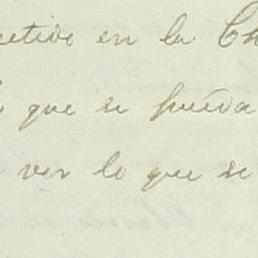 en la Ch
que se pueda
ver lo que se